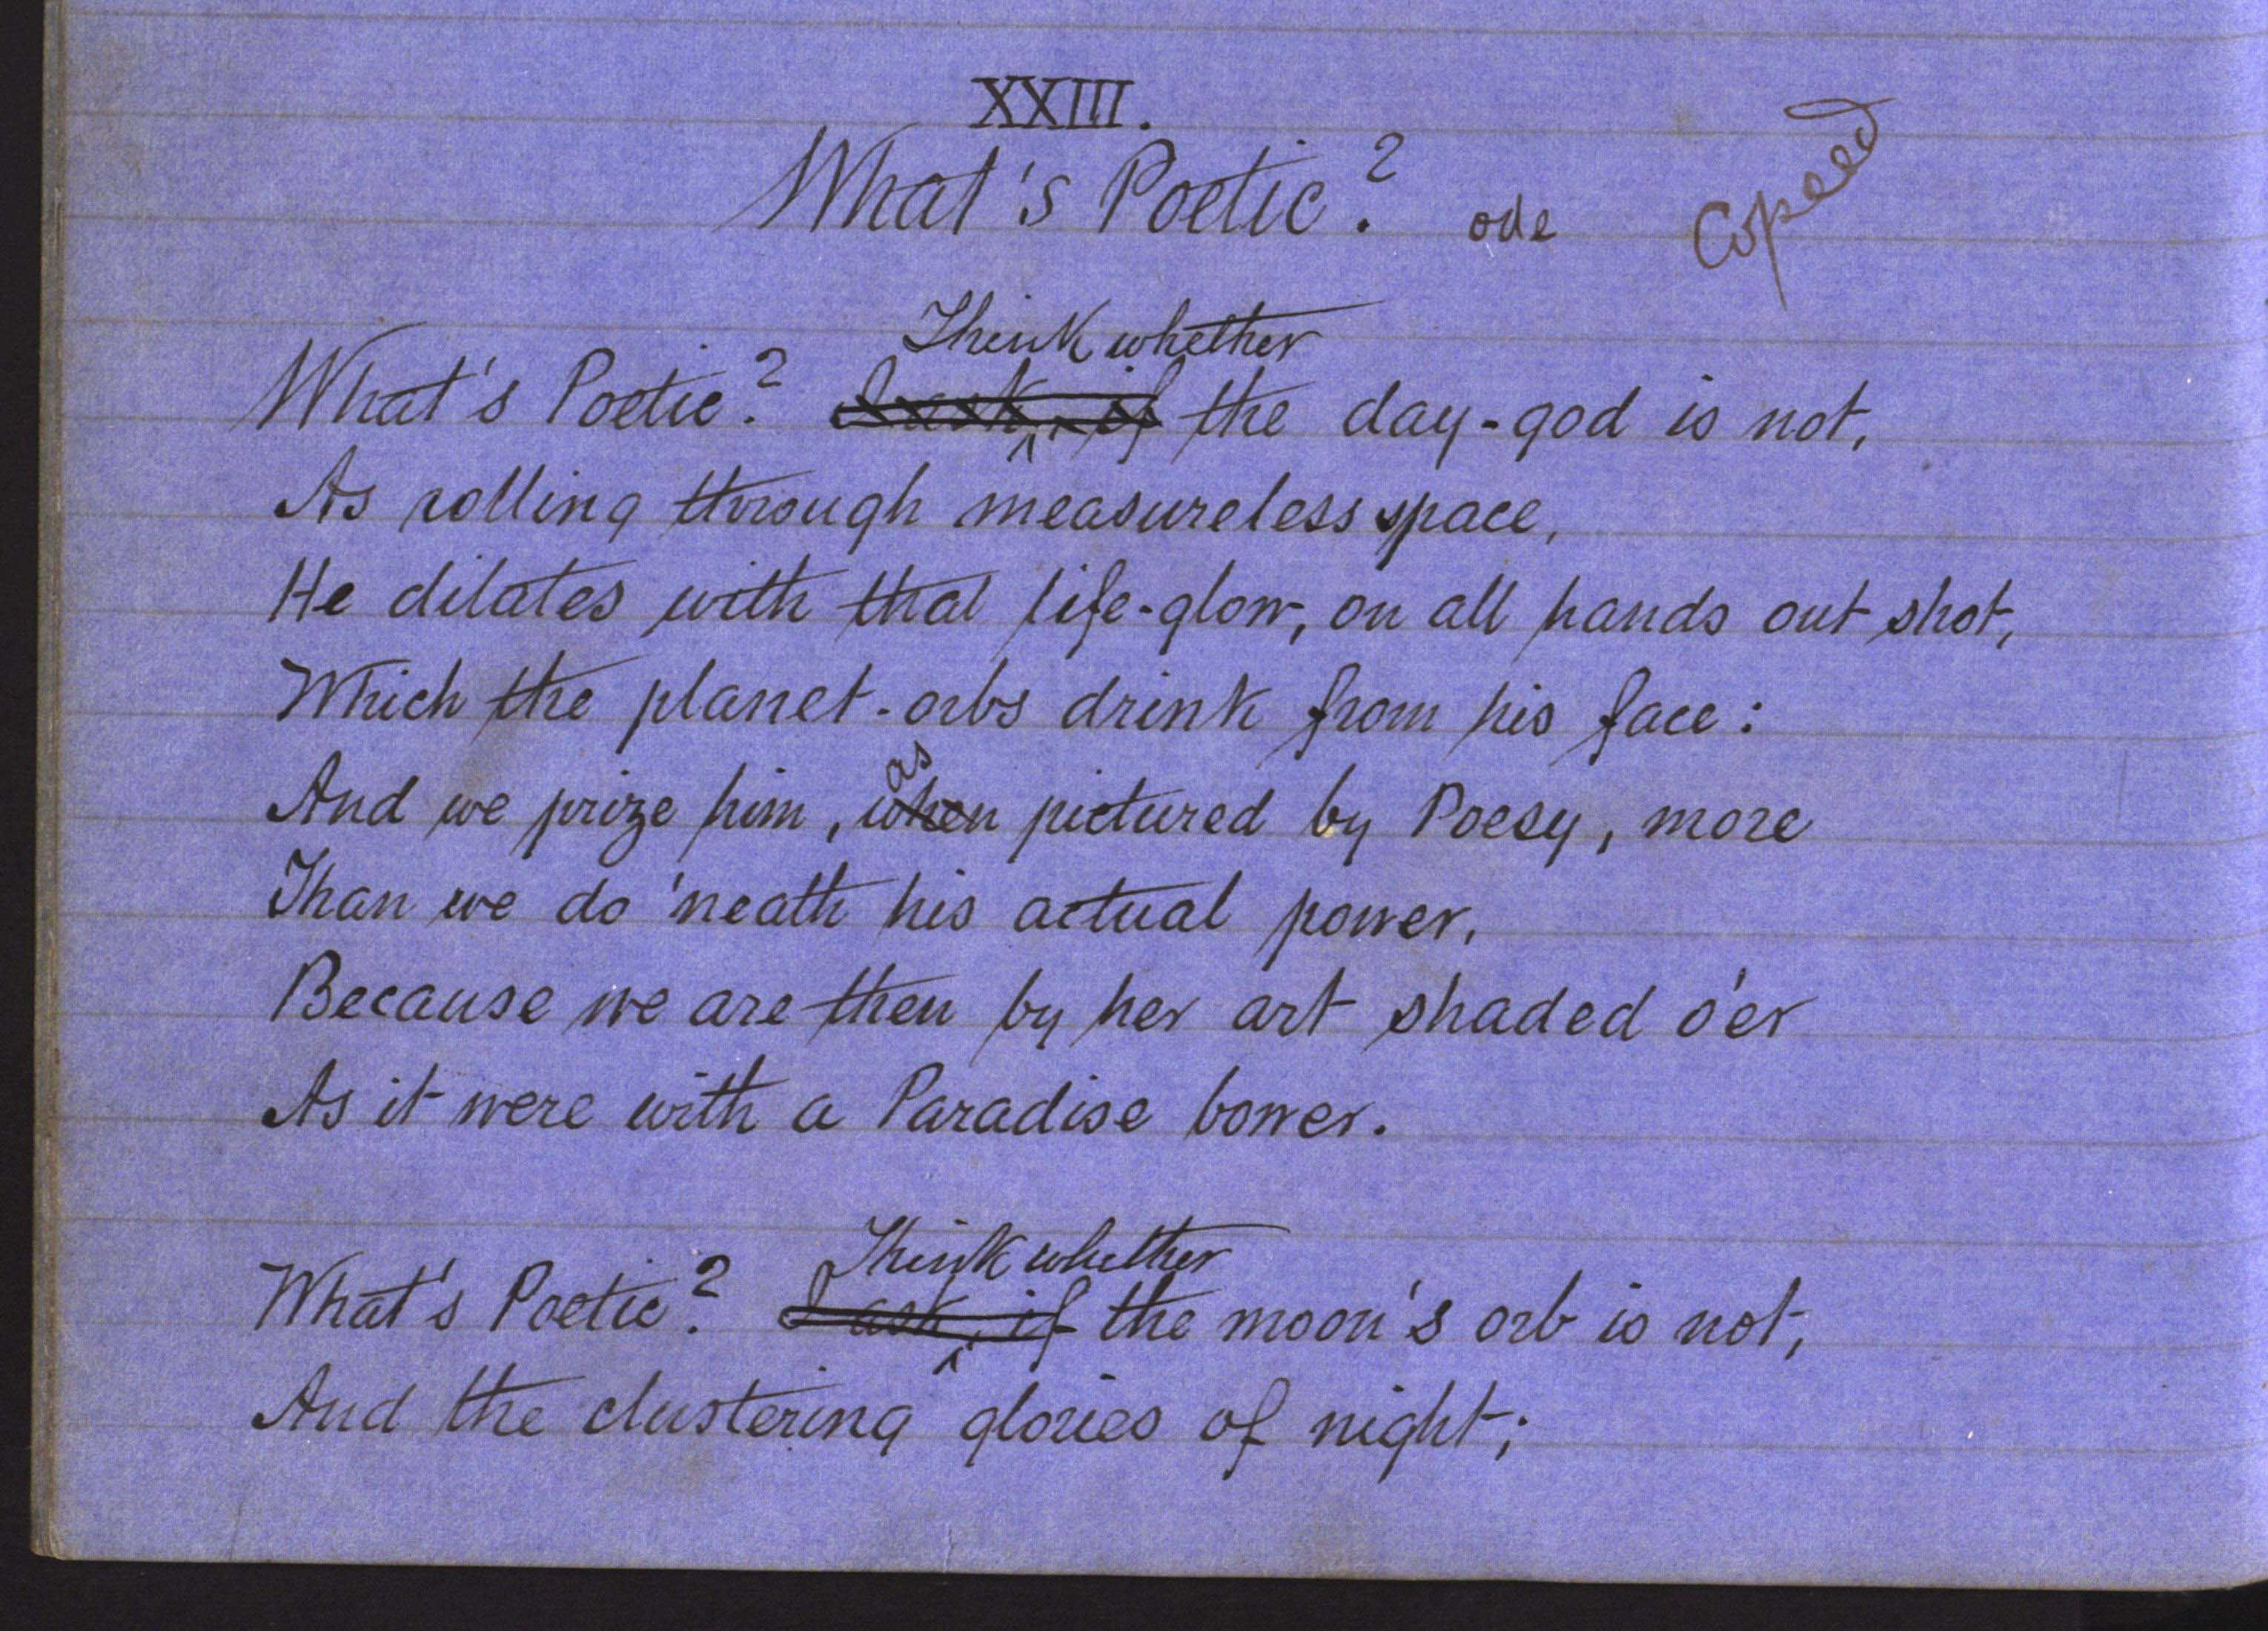 XXIII.
What's Poetic? ode Copeed
Think whether
What's Poetic? I ask, if the day-god is not,
As rolling through measureless space,
He dilates with that life-glow, on all hands out shot,
Which the planet-orbs drink from his face:
as
And we prize him, when pictured by Poesy, more
Than we do 'neath his actual power,
Because we are then by her art shaded o'er
As it were with a Paradise bower.
Think whether
What's Poetic? I ask, if the moon's orb is not,
And the clustering glories of night;